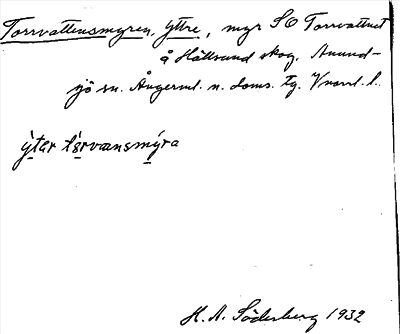 Torrvattensmyren, Yttre, myr SO Torrvattnet
å Hällsund skog, Anund-
sjö sn. Ångerml. n. doms. tg. Vnorrl. l.
ỳtər tʹɛrvænsmỳra
H. A. Söderberg 1932